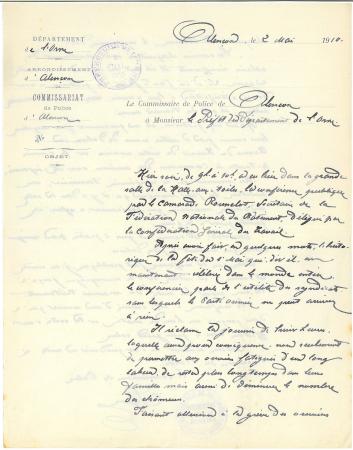 DÉPARTEMENT
de l'Orne
ARRONDISSEMENT
d'Alençon
COMMISSARIAT
de Police
d'Alençon
N°
OBJET
Alençon, le 2 Mai 1910.
Le Commissaire de Police de Alençon
à Monsieur le Préfet du Département de l'Orne
Hier soir, de 9h à 10h, a eu lieu dans la grande
salle de la Halle-aux-toiles, la conférence publique
par le camarade Secrétaire de la
Fédération Nationale du Bâtiment, délégué par
la Confédération Générale du Travail
Après avoir fait, en quelques mots, l'histo-
rique de la fête du 1er Mai qui, dit-il, est
maintenant célébrée dans le monde entier,
le conférencier parle de l'utilité du syndicat
sans lequel le Parti ouvrier ne peut arriver
à rien.
Il réclame la journée de huit heures,
laquelle aura pour conséquence, non seulement
de permettre aux ouvriers fatigués d'un long
labeur, de rester plus longtemps dans leur
famille mais aussi de diminuer le nombre
des chômeurs.
Faisant allusion à la grève des ouvriers